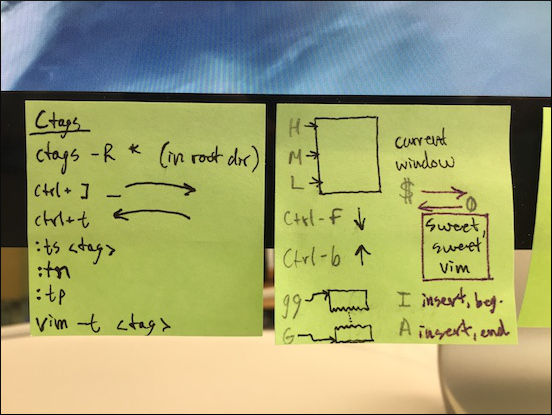 Ctags
ctags -R * (in root dir)
ctrl + ] _
ctrl + t
:ts <tag>
:tn
:tp
vim -t <tag>
H
M
L
current
window
$
0
Ctrl-F
Ctrl-b
sweet,
sweet
vim
gg
G
I insert, beg.
A insert, end